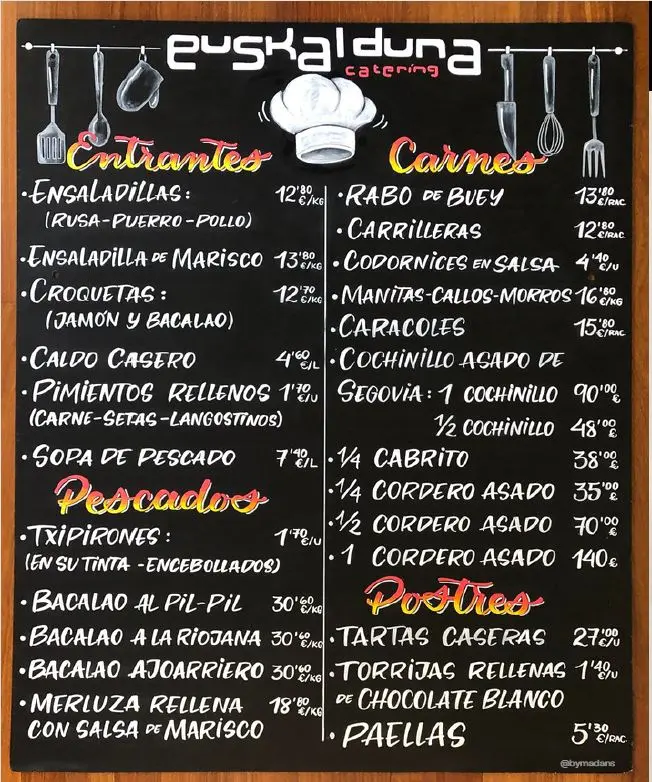 euskalduna
catering
Entrantes
• ENSALADILLAS: 12'80 €/KG
(RUSA-PUERRO-POLLO)
• ENSALADILLA DE MARISCO 13'80 €/KG
• CROQUETAS: 12'70 €/KG
(JAMÓN Y BACALAO)
• CALDO CASERO 4'60 €/L
• PIMIENTOS RELLENOS 1'70 €/U
(CARNE-SETAS-LANGOSTINOS)
• SOPA DE PESCADO 7'40 €/L
Pescados
• TXIPIRONES: 1'70 €/U
(EN SU TINTA - ENCEBOLLADOS)
• BACALAO AL PIL-PIL 30'60 €/KG
• BACALAO A LA RIOJANA 30'60 €/KG
• BACALAO AJOARRIERO 30'60 €/KG
• MERLUZA RELLENA 18'80 €/KG
CON SALSA DE MARISCO
Carnes
• RABO DE BUEY 13'80 €/RAC
• CARRILLERAS 12'80 €/RAC
• CODORNICES EN SALSA 4'40 €/U
• MANITAS-CALLOS-MORROS 16'80 €/KG
• CARACOLES 15'80 €/RAC
• COCHINILLO ASADO DE
SEGOVIA: 1 COCHINILLO 90'00 €
1/2 COCHINILLO 48'00 €
• 1/4 CABRITO 38'00 €
• 1/4 CORDERO ASADO 35'00 €
• 1/2 CORDERO ASADO 70'00 €
• 1 CORDERO ASADO 140 €
Postres
• TARTAS CASERAS 27'00 €/U
• TORRIJAS RELLENAS 1'40 €/U
DE CHOCOLATE BLANCO
• PAELLAS 5'30 €/RAC
@bymadans